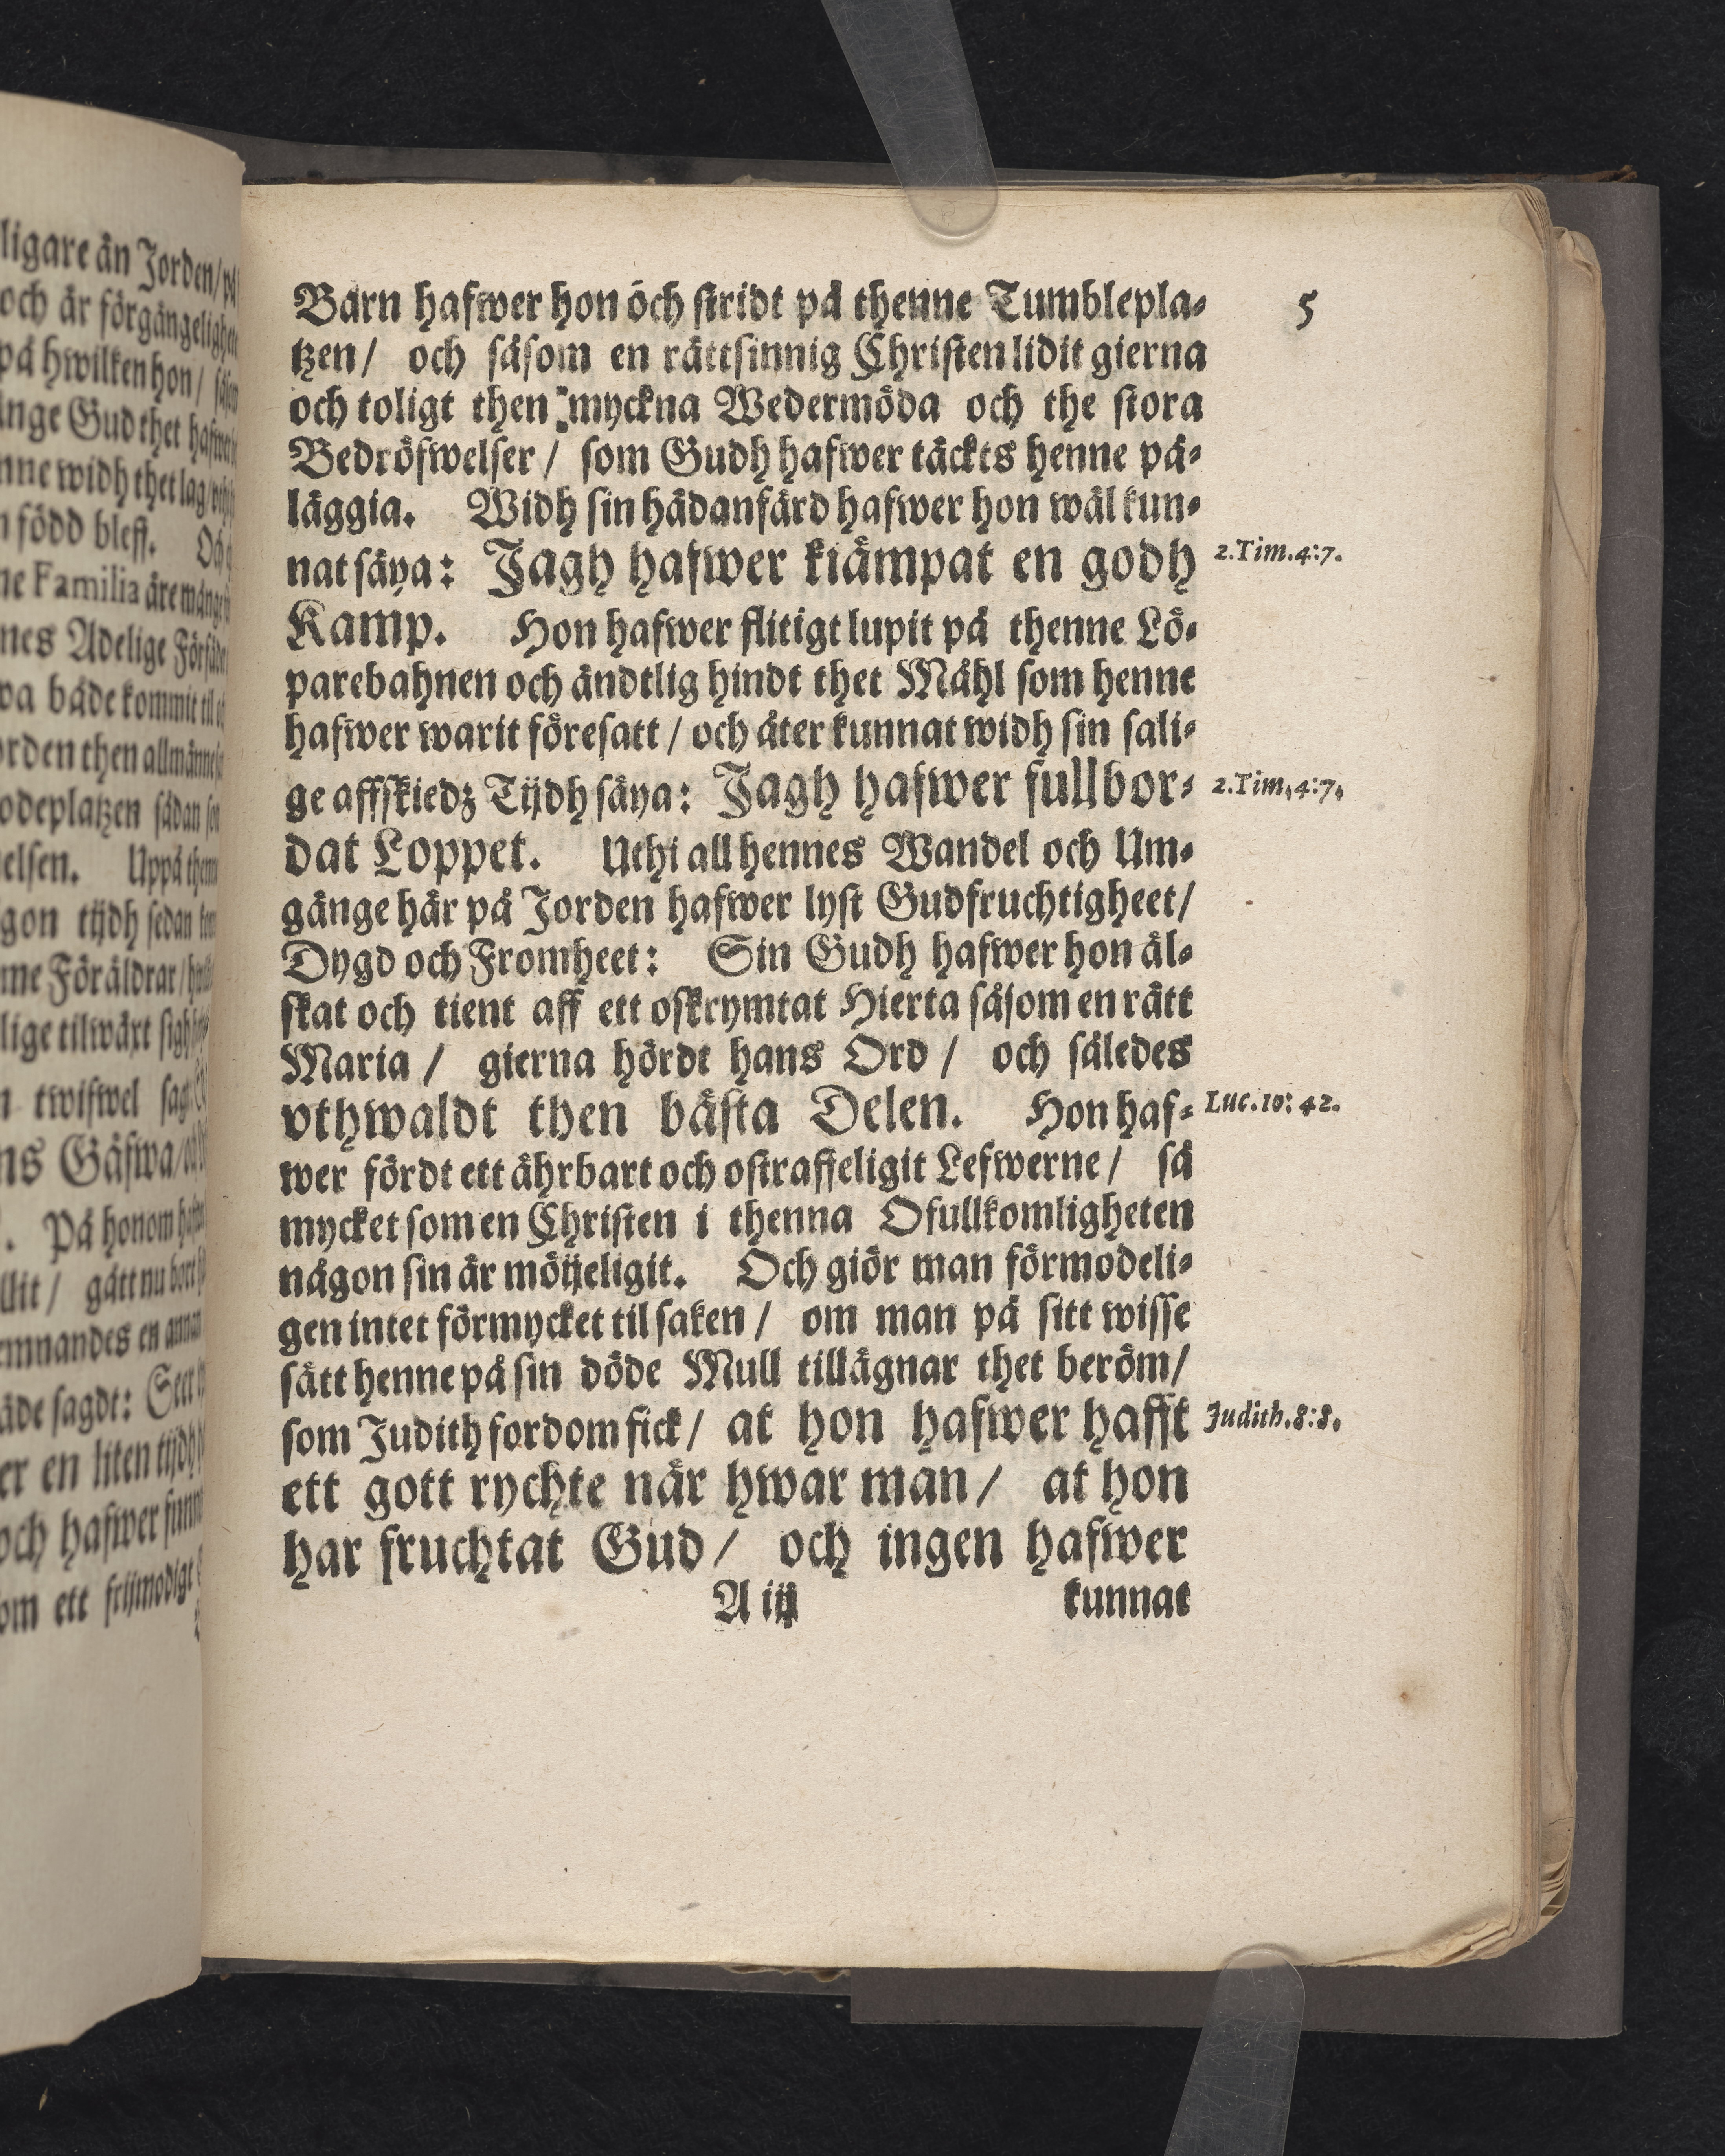 ligare än Jorden/ på
och är förgängelighe
på hwilken hon/ såsom
änge Gud thet hafwer
nne widh thet lag/
n född bleff. Och
ne Familia äre många
nes Adelige Förfäder
wa både kommit til
orden then allmänne
odeplatzen sådan som
elsen. Uppå thenn
gon tijdh sedan
nne Föräldrar/
lige tilwäxt sigh
n twifwel sag
ns Gåfwa/
. På honom hafwer
llit/ gått nu bort
emnandes en annan
äde sagdt: Seer
er en liten tijdh
och hafwer funn
om ett frijmodigt
5
Barn hafwer hon öch stridt på thenne Tumblepla-
tzen/ och såsom en rättsinnig Christen lidit gierna
och toligt then myckna Wedermöda och the stora
Bedröfwelser/ som Gudh hafwer täckts henne på-
läggia. Widh sin hädanfärd hafwer hon wäl kun-
nat säya: Jagh hafwer kiämpat en godh 2.Tim.4:7.
Kamp. Hon hafwer flitigt lupit på thenne Lö-
parebahnen och ändtlig hindt thet Måhl som henne
hafwer warit föresatt/ och åter kunnat widh sin sali-
ge affskiedz Tijdh säya: Jagh hafwer fullbor- 2.Tim.4:7.
dat Loppet. Uthi all hennes Wandel och Um-
gänge här på Jorden hafwer lyst Gudfruchtigheet/
Dygd och Fromheet: Sin Gudh hafwer hon äl-
skat och tient aff ett oskrymtat Hierta såsom en rätt
Maria/ gierna hördt hans Ord/ och således
vthwaldt then bästa Delen. Hon haf- Luc.10:42.
wer fördt ett ährbart och ostraffeligit Lefwerne/ så
mycket som en Christen i thenna Ofullkomligheten
någon sin är möijeligit. Och giör man förmodeli-
gen intet förmycket til saken/ om man på sitt wisse
sätt henne på sin döde Mull tillägnar thet beröm/
som Judith fordom fick/ at hon hafwer hafft Judith.8:8.
ett gott rychte när hwar man/ at hon
har fruchtat Gud/ och ingen hafwer
A iij kunnat